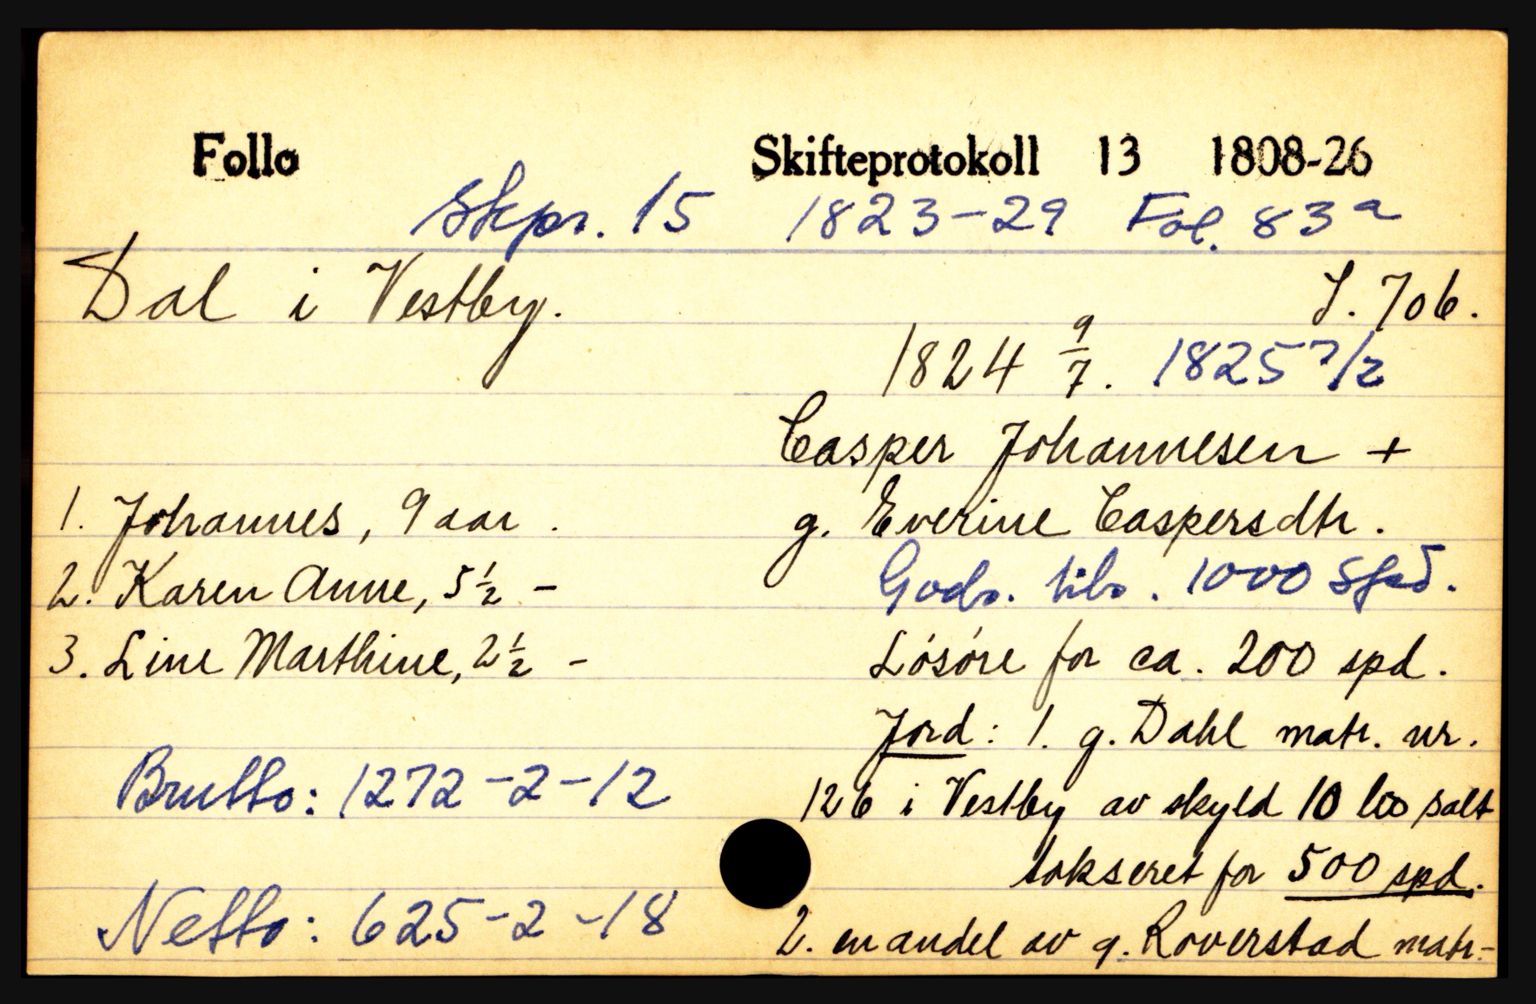 Follo Skifteprotokoll 13 1808-26
Skpr. 15 1823-29 Fol. 83a
Dal i Vestby. S. 706.
1824 9/7. 1825 7/2
Casper Johannesen +
1. Johannes, 9 aar. g. Everine Caspersdtr.
2. Karen Anne, 5 1/2 - 1000 Spd.
3. Line Marthine, 2 1/2 - Lösöre for ca. 200 spd.
Jord: 1. g. Dahl matr. nr.
Brutto: 1272-2-12 126 i Vestby av skyld 10 salt
takseret for 500 spd.
Netto: 625-2-18 2. en andel av g. Roverstad matr-